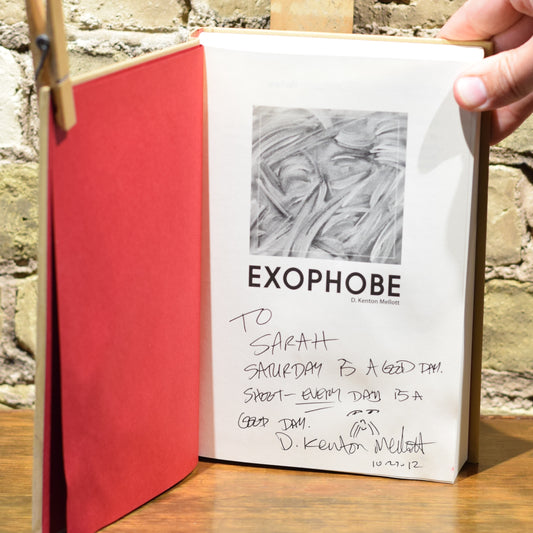 EXOPHOBE
D. Kenton Mellott
TO
SARAH
SATURDAY IS A GOOD DAY.
SHOOT- EVERY DAY IS A
GOOD DAY.
D. Kenton Mellott
10-27-12